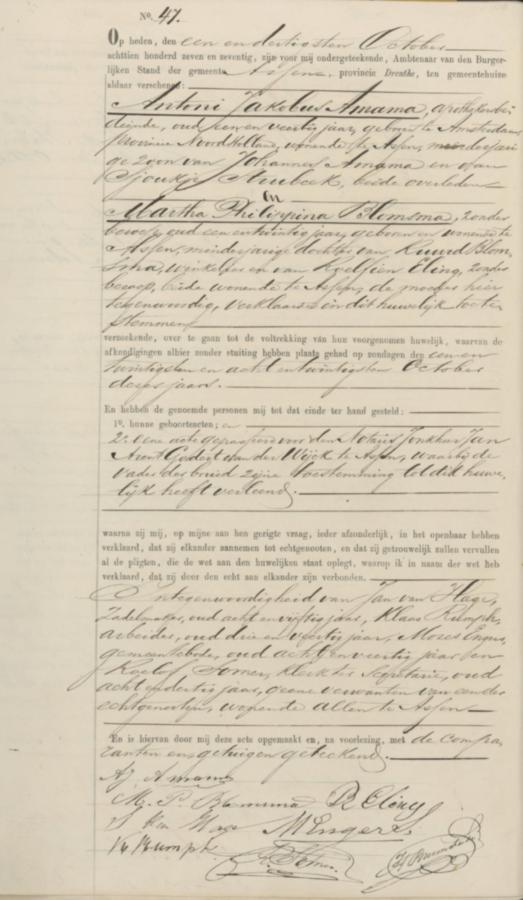 No. 47.
Op heden, den een en dertigsten October
achttien honderd zeven en zeventig, zijn voor mij ondergeteekende, Ambtenaar van den Burger-
lijken Stand der gemeente Assen, provincie Drenthe, ten gemeentehuize
aldaar verschenen:
Antoni Jakobus Amama, apothekersbe
diende, oud een en veertig jaar, geboren te Amsterdam,
provincie Noord Holland, wonende te Assen, meerderjari
ge zoon van Johannes Amama en van
Sjoukje, beide overleden
en
Martha Philippina Blomsma, zonder
beroep, oud een en twintig jaar, geboren en wonende te
Assen, minderjarige dochter van Ruurd Blom,
sma, winkelier en van Roelfien Eling, zonder
beroep, beide wonende te Assen, de moeder hier
tegenwoordig, verklarende in dit huwelijk toe te
stemmen
verzoekende, over te gaan tot de voltrekking van hun voorgenomen huwelijk, waarvan de
afkondigingen alhier zonder stuiting hebben plaats gehad op zondagen den een en
twintigsten en acht en twintigsten October
dezes jaars.
En hebben de genoemde personen mij tot dat einde ter hand gesteld:
1º. hunne geboorteacten; en
2º. eene acte gepasseerd voor den Notaris Jonkheer Jan
Arent Godert van der Wijck te Assen, waarbij de
vader der bruid zijne toestemming tot dit huwe,
lijk heeft verleend.
waarna zij mij, op mijne aan hen gerigte vraag, ieder afzonderlijk, in het openbaar hebben
verklaard, dat zij elkander aannemen tot echtgenooten, en dat zij getrouwelijk zullen vervullen
al de pligten, die de wet aan den huwelijken staat oplegt, waarop ik in naam der wet heb
verklaard, dat zij door den echt aan elkander zijn verbonden.
In tegenwoordigheid van Jan van Hage,
zadelmaker, oud acht en vijftig jaar, Klaas Rumph,
arbeider, oud drie en veertig jaar, Moses Engers,
gemeentebode, oud acht en veertig jaar en
Roelof Somer, klerk ter Secretarie, oud
acht en dertig jaar, geene verwanten van een der
echtgenooten, wonende allen te Assen
En is hiervan door mij deze acte opgemaakt en, na voorlezing, met de compa
ranten en getuigen geteekend.
Aj Amama
M. P. Blomsma R Eling
J van Hage M Engers
K Rumph
R. Somer